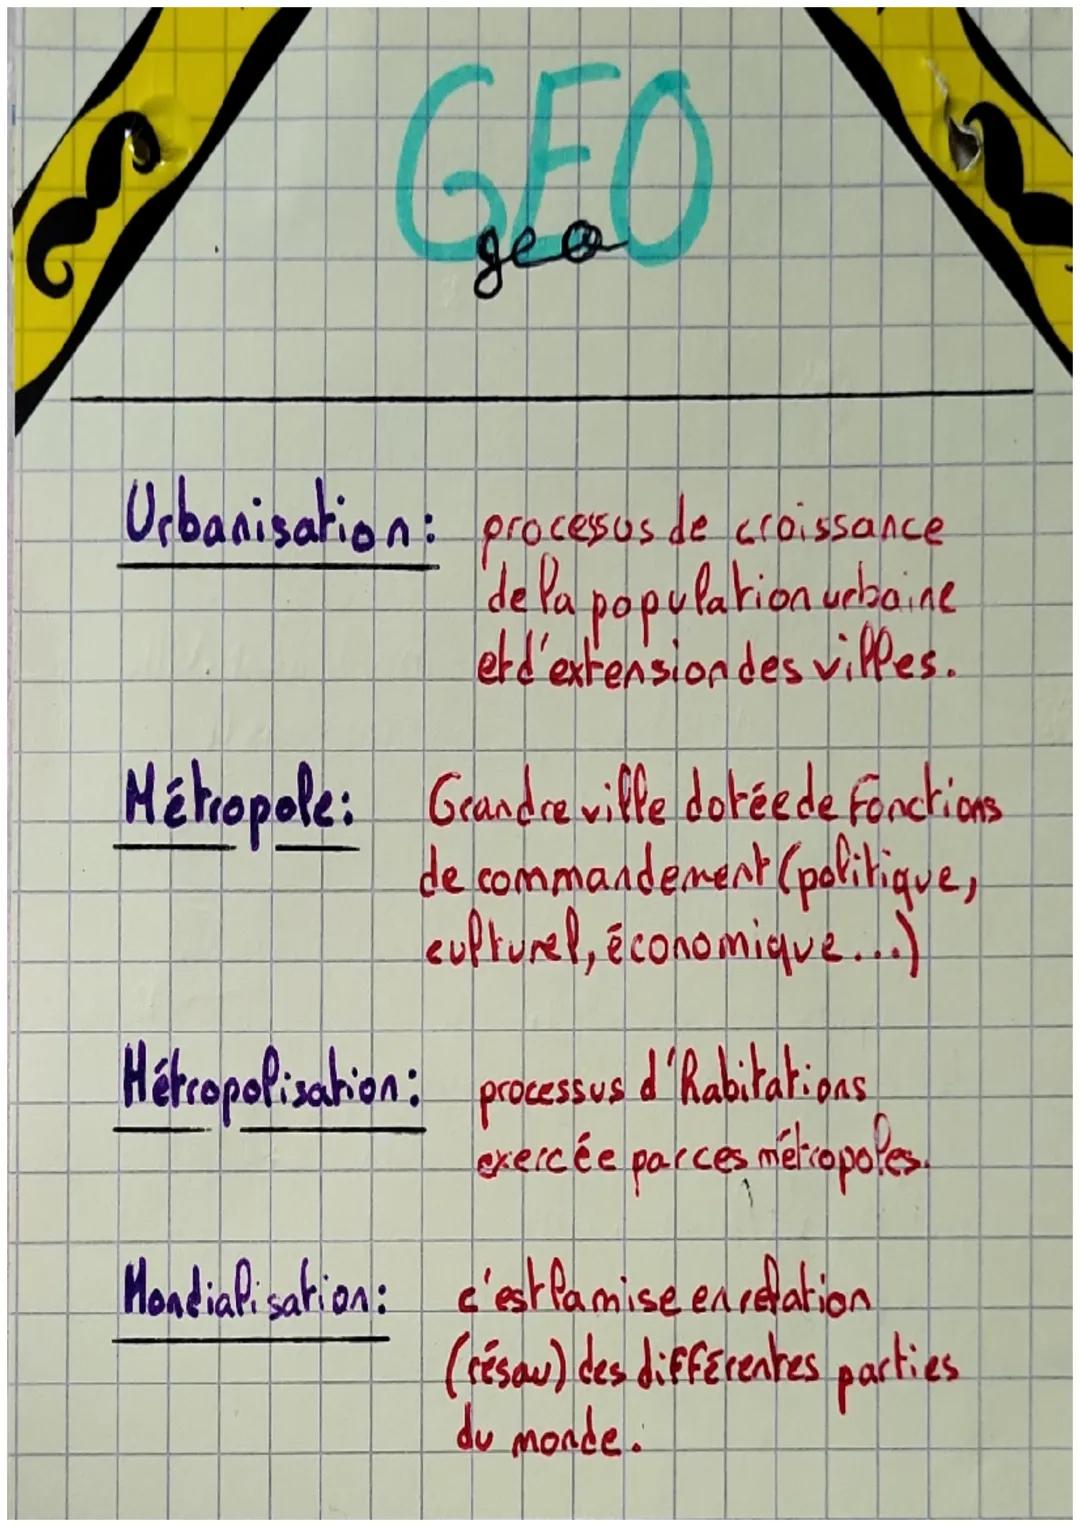 GEO
geo
Urbanisation: processus de croissance
de la population urbaine
et d'extension des villes.
Métropole: Grandre ville dotée de fonctions
de commandement (politique,
culturel, économique...)
Métropolisation: processus d'habitations
exercée par ces métropoles.
Mondialisation: c'est la mise en relation
(résau) des différentes parties
du monde.